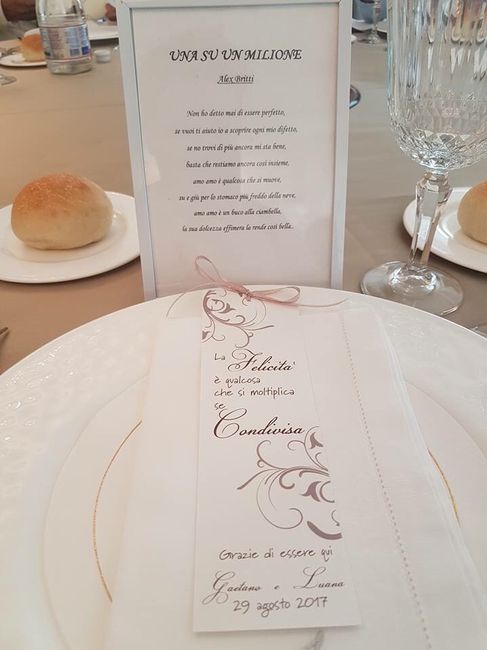 UNA SU UN MILIONE
Alex Britti
Non ho detto mai di essere perfetto,
se vuoi ti aiuto io a scoprire ogni mio difetto,
se no trovi di più ancora mi sta bene,
basta che restiamo ancora così insieme,
amo amo è qualcosa che si muove,
su e giù per lo stomaco più freddo della neve,
amo amo è un buco alla ciambella,
la sua dolcezza effimera la rende così bella..
La Felicita'
è qualcosa
che si moltiplica
se
Condivisa
Grazie di essere qui
Gaetano e Luana
29 agosto 2017